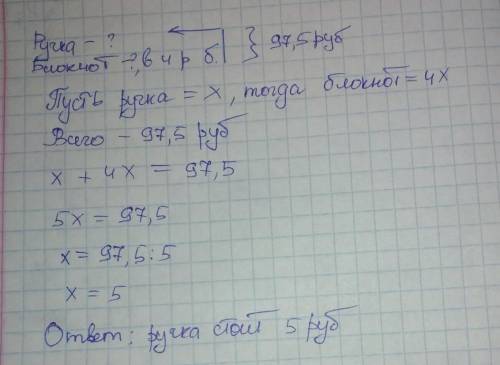 Ручка - ?
Блокнот - ?, в 4 р б. } 97,5 руб
Пусть ручка = x, тогда блокнот = 4x
Всего - 97,5 руб
x + 4x = 97,5
5x = 97,5
x = 97,5 : 5
x = 5
Ответ: ручка стоит 5 руб